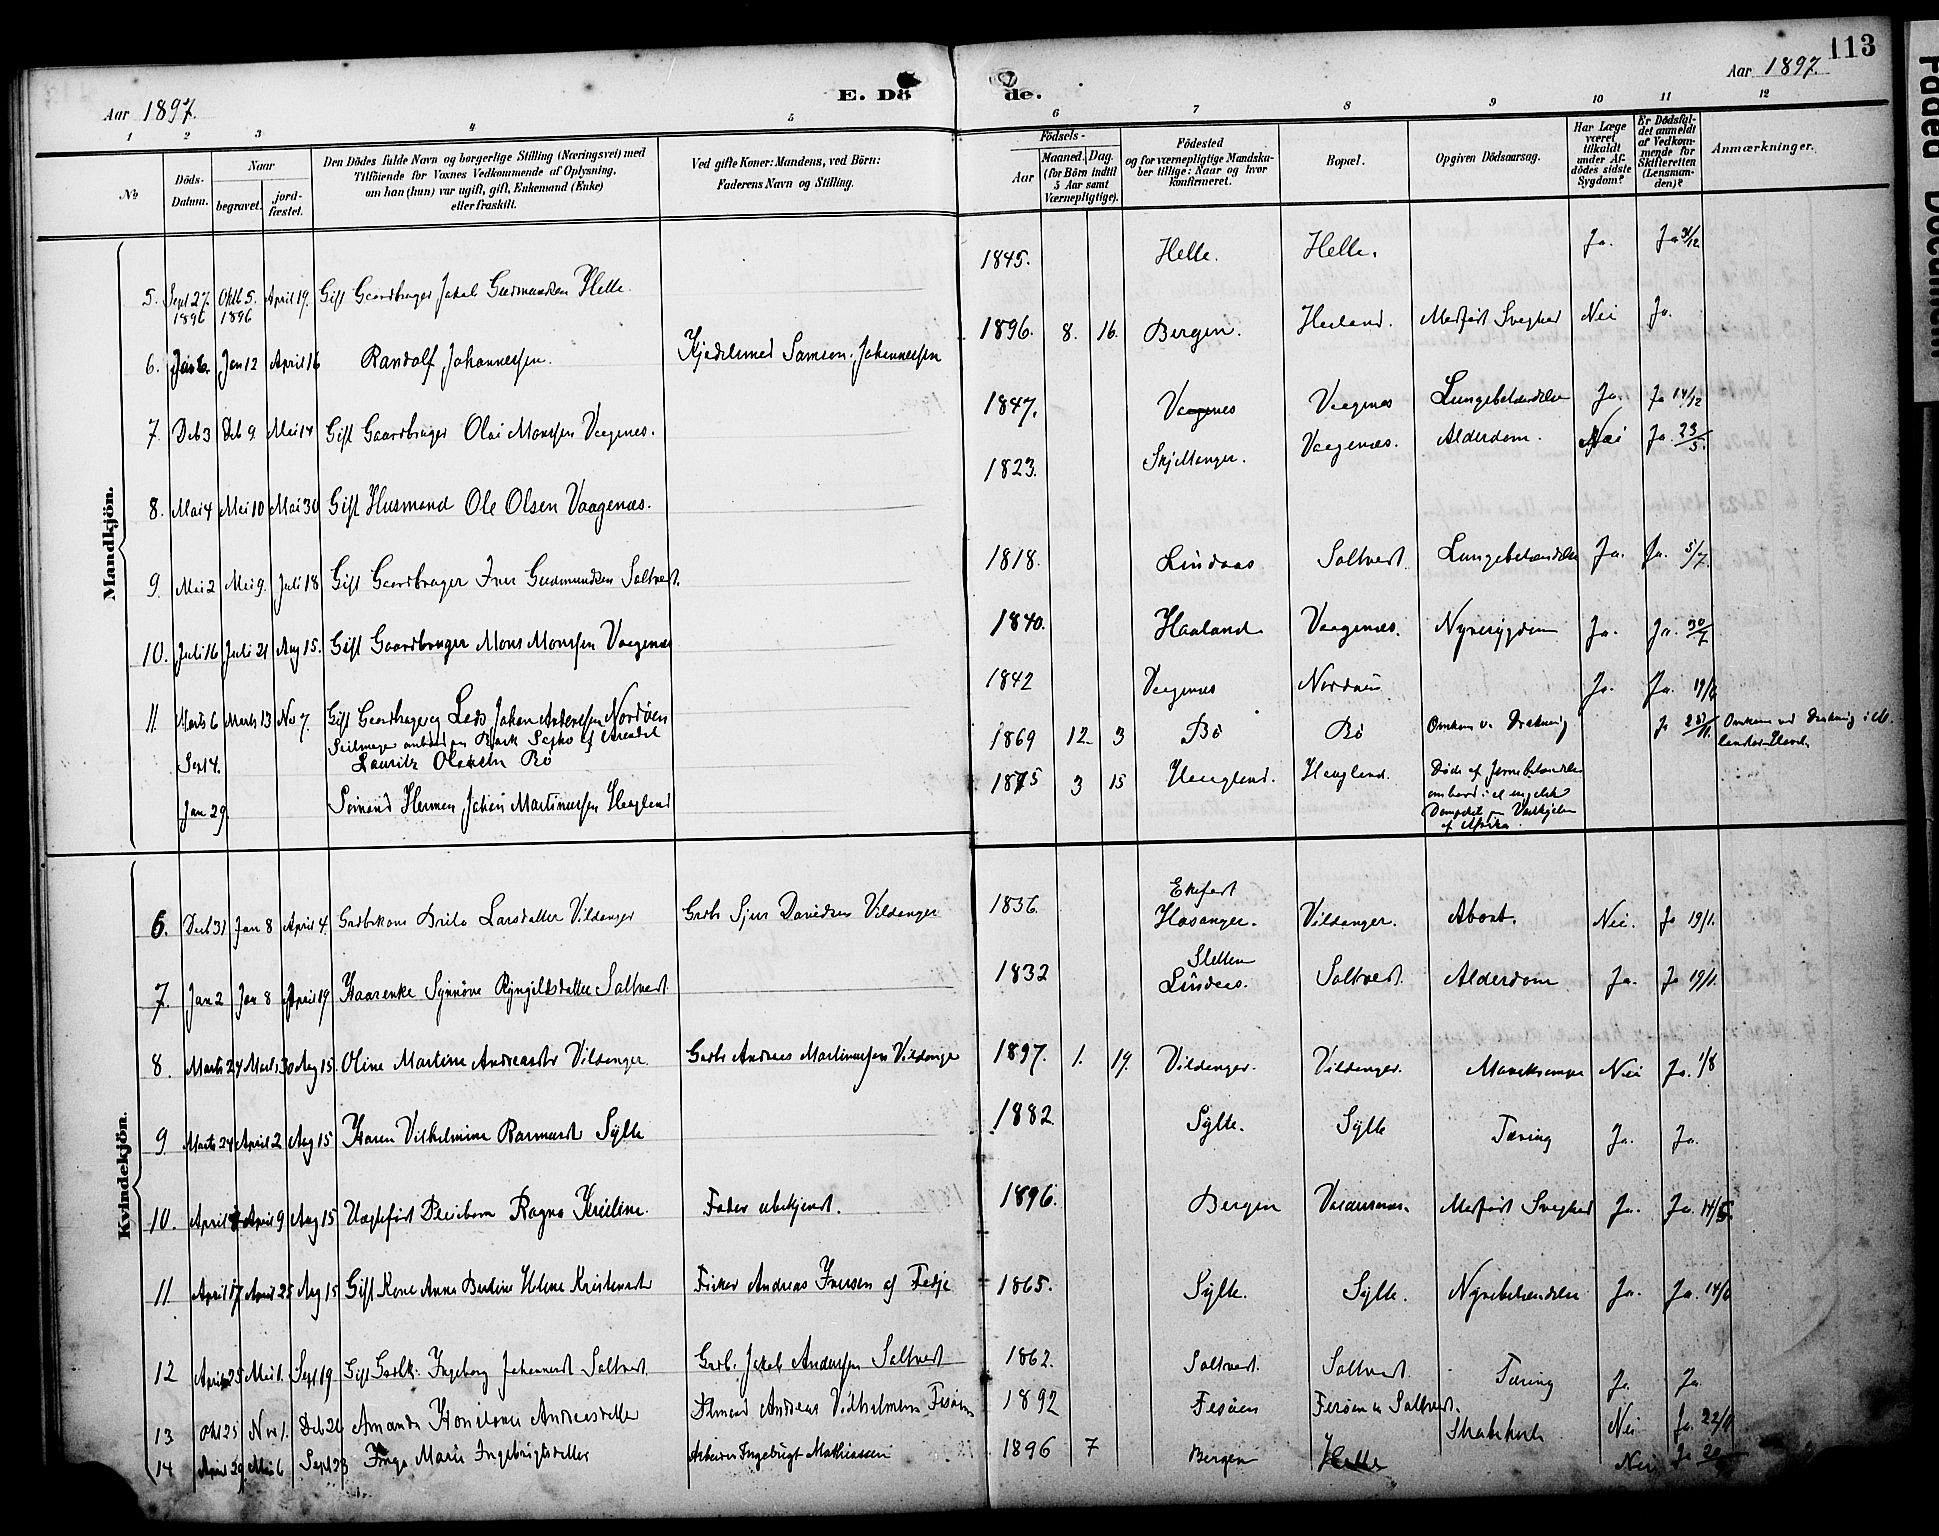 113
Aar 1897.
E. Dö
de.
Aar 1897.
1 2 3 4 5 6 7 8 9 10 11 12
No
Döds-Datum.
Naar
begravet.
jord-fæstet.
Den Dödes fulde Navn og borgerlige Stilling (Næringsvei) med
Tilföiende for Voxnes Vedkommende af Oplysning,
om han (hun) var ugift, gift, Enkemand (Enke)
eller fraskilt.
Ved gifte Koner: Mandens, ved Börn:
Faderens Navn og Stilling.
Födsels-
Aar
Maaned. Dag.
(for Börn indtil
5 Aar samt
Værnepligtige).
Födested
og for værnepligtige Mandska-
ber tillige: Naar og hvor
konfirmeret.
Bopæl.
Opgiven Dödsaarsag.
Har Læge
været
tilkaldt
under Af-
dödes sidste
Sygdom?
Er Dödsfal-
det anmeldt
af Vedkom-
mende for
Skifteretten
(Lensman-
den)?
Anmærkninger.
Mandkjön.
5. Sept 27. 1896 Oktb 5. 1896 April 19. Gift Gaardbruger Jakob Gudmundsen Helle. 1845. Helle. Helle. Ja. Ja 31/12
6. Jan 6. Jan 12 April 16 Randolf Johannessen. Kjedelsmed Samson Johannessen 1896. 8. 16. Bergen. Medfødt Svaghed Nei Ja.
7. Deb 3 Deb 9. Mai 14 Gift Gaardbruger Olai Monssen Vaagenes. 1847. Vaagenes Vaagenes Lungebetændelse Ja. Ja 14/12
8. Mai 4 Mai 10 Mai 30 Gift Husmand Ole Olsen Vaagenæs. 1823. Skjellanger. Vaagenæs. Alderdom. Nei Ja. 23/5.
9. Mai 2 Mai 9. Juli 18 Gift Gaardbruger Iver Gudmundsen Saltvert. 1818. Lindaas Saltvert. Lungebetændelse Ja. Ja. 5/7.
10. Juli 16 Juli 21 Aug 15. Gift Gaardbruger Mons Monssen Vaagenæs 1840. Haaland Vaagenæs. Nyresygdom Ja. Ja. 30/7
11. Marts 6 Marts 13 Nov 7. Gift Lods Johan Andersen Nordøen 1842 Vaagenes Ja. Ja. 19/
Sept 4. Bark af Arendal Lauritz Bø 1869 12. 3 Bø Bø Omkom v. Drukning Ja Omkom ved Drukning
Jan 29. Sømand Herman Johan Martinussen Haagland 1875 3 15 Haagland. Haagland. Døde af ombord i et engelsk af Afrika.
Kvindekjön.
6. Deb 31 Jan 8 April 4. Gaardbrkone Brita Larsdatter Vildanger Gaardb Sjur Davidsen Vildanger 1836. Hosanger. Vildanger. Abort. Nei. Ja 19/1.
7. Jan 2 Jan 8 April 19 Kaarenke Synnøve Saltvert 1832 Sletten Lindaas. Saltvert. Alderdom Ja. Ja 19/1.
8. Marts 24 Marts 30 Aug 15. Oline Martine Andreasdtr Vildanger. Gaardb Andreas Martinussen Vildanger 1897. 1. 19. Vildanger. Vildanger. Mavekrampe Nei Ja. 1/8
9 Marts 24 April 2 Aug 15 Karen Vilhelmine Rasmusdt Sylte 1882 Sylte. Sylte Tæring Ja. Ja.
10. April April 9 Aug 15 Pleiebarn Ragna Kristine. Fader ubekjendt. 1896. Bergen Valdersnes. Medfødt Svaghed Ja. Ja.
11 April 17 April 25 Aug 15 Gift Kone Anna Bertine Helene Kristensdtr Fisker Andreas Iversen af Fedje 1865. Sylte. Sylte. Nyrebetændelse Ja. Ja. 14/
12 April 25 Mai 1. Sept 19 Gift Ingeborg Johannesdt Saltvert Jakob Andersen Saltvert 1862. Saltvert. Saltvert. Tæring Ja. Ja.
13. Okt 25 Nov 1. Deb 26 Amanda Andreasdatter Andreas Vilhelmsen Fesøen 1892 Fesøen Fesøen Saltvert. Strubehoste Nei Ja. 22/11
14 April 29 Mai 6 Sept 23 Inga Marie Ingebrigtsdatter Arbeider Ingebrigt Mathiassen 1896 7 Bergen Helle Nei Ja